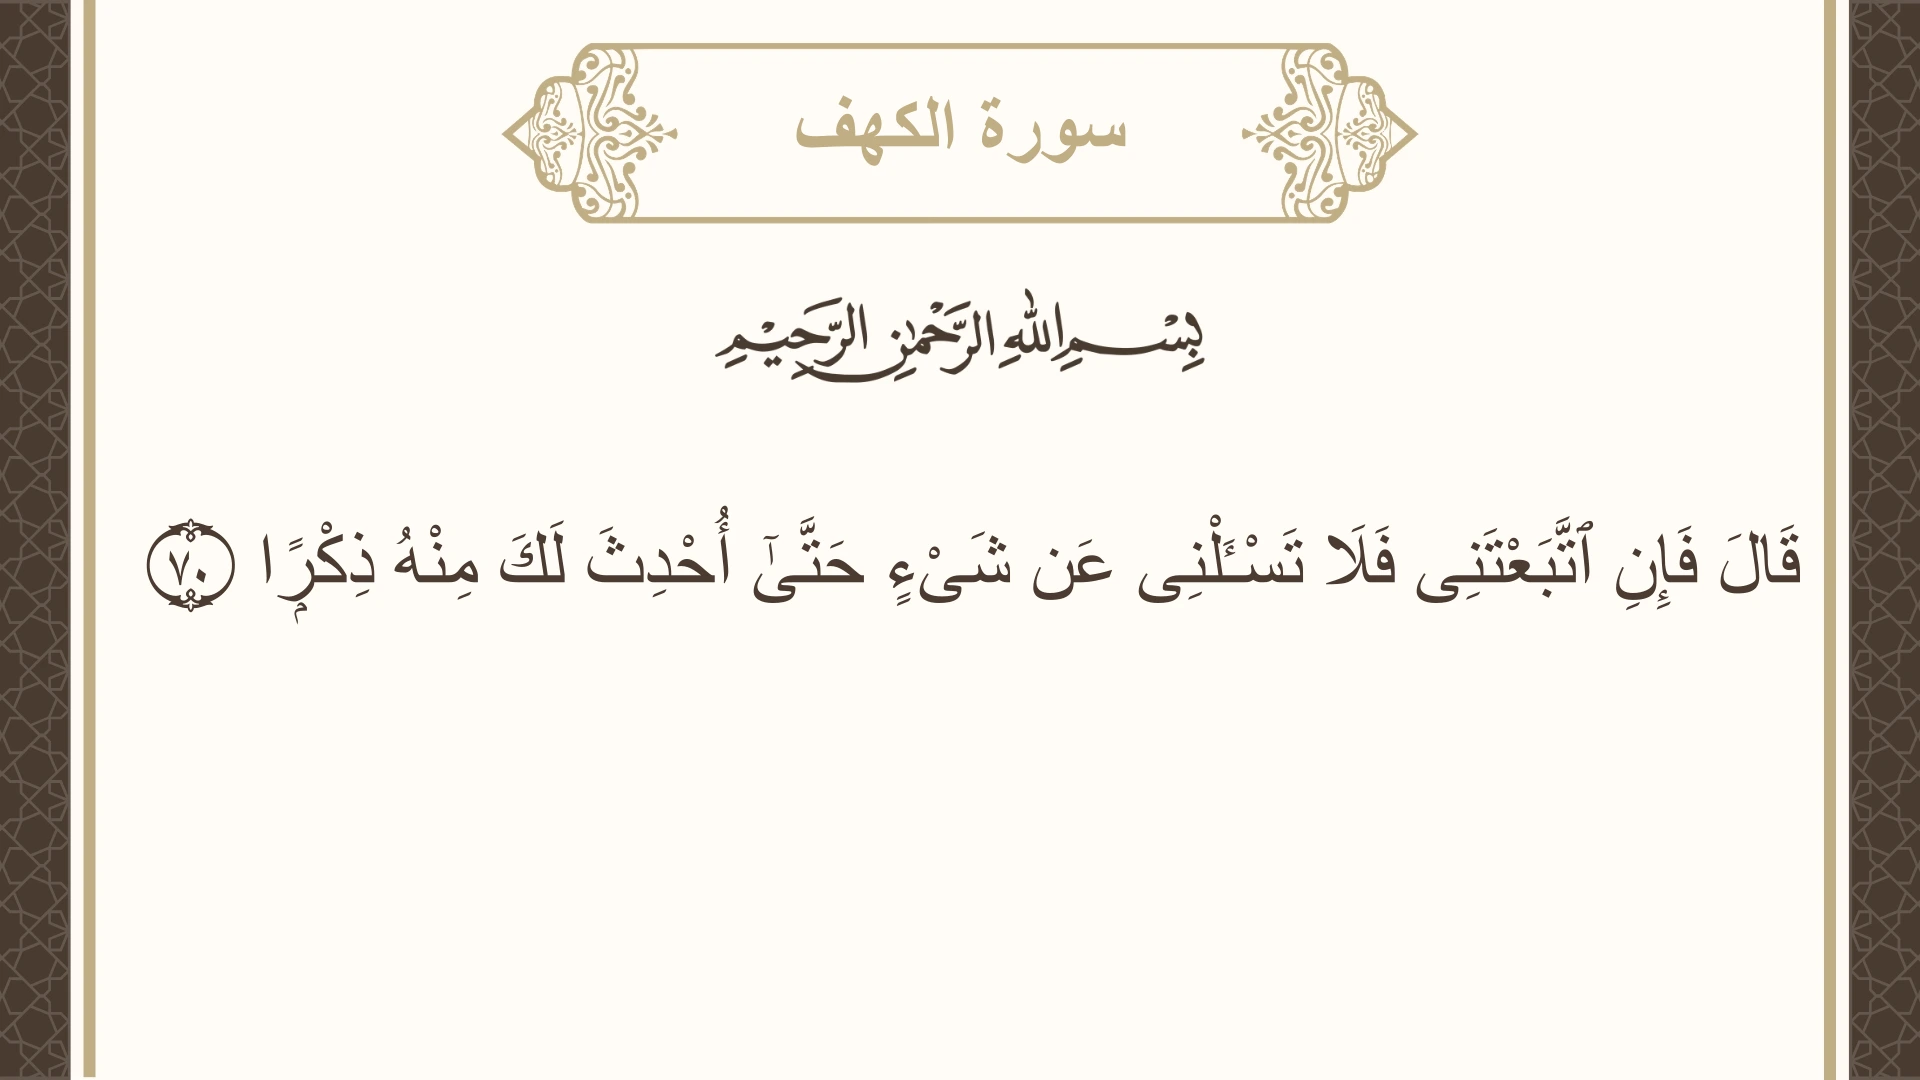 سورة الكهف
بِسْمِ اللهِ الرَّحْمٰنِ الرَّحِيْمِ
قَالَ فَإِنِ ٱتَّبَعْتَنِى فَلَا تَسْـَٔلْنِى عَن شَىْءٍ حَتَّىٰٓ أُحْدِثَ لَكَ مِنْهُ ذِكْرًۭا ٧٠